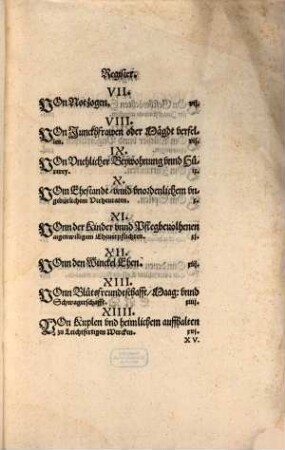 Register.
VII.
VOn Notzogen. vij.
VIII.
VOn Junckfrawen oder Mägdt verfel-
len. vij.
IX.
VOn Vnehlicher Beywohnung vnnd Hü-
rerey. ix.
X.
VOm Ehestande / vnnd vnordenlichem vn-
gebürlichem Verheuraten. x.
XI.
VOnn der Kinder vnnd Pflegbeuolhenen
aigenwilligen Ehuerpflichten. xj.
XII.
VOnn den Winckel Ehen. xiij.
XIII.
VOnn Blůtsfreundtschafft / Maag: vnnd
Schwagerschafft. xiiij.
XIIII.
VOn Kuplen vnd heimlichem auffhalten
zu Leichtfertigen Wercken. xvj.
XV.